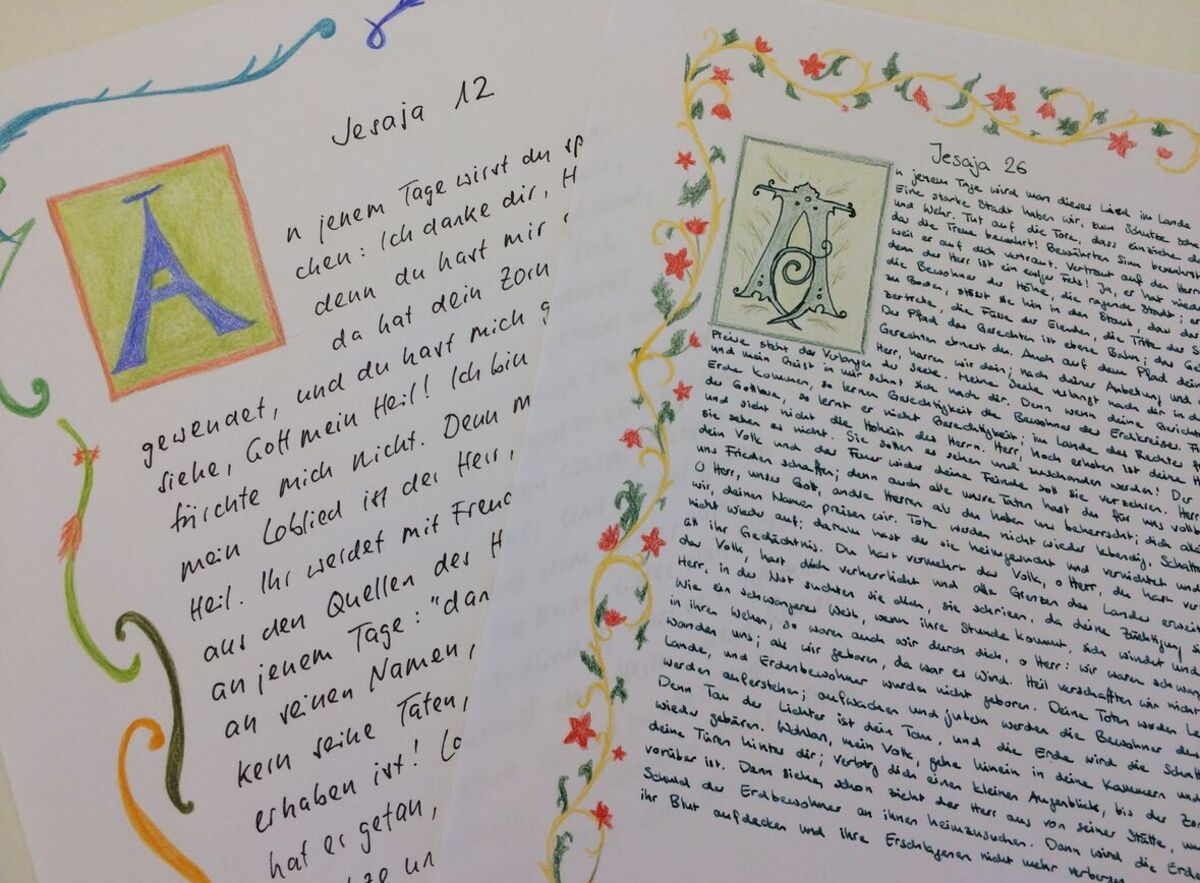 Jesaja 12
A
n jenem Tage wirst du sp
chen: Ich danke dir, H
denn du hast mir
da hat dein Zorn
gewendet, und du hast mich g
siehe, Gott mein Heil! Ich bin
fürchte mich nicht. Denn m
mein Loblied ist der Herr,
Heil. Ihr werdet mit Freud
aus den Quellen des H
an jenem Tage: "dan
an seinen Namen,
kern seine Taten,
erhaben ist! Lo
hat er getan,
Jesaja 26
A
n jenem Tage wird man dieses Lied im Lande
Eine starke Stadt haben wir, zum Schutze
und Wehr. Tut auf die Tore, dass einziehe
das die Treue bewahrt! Bewährten Sinn bewahrst
weil er auf dich vertraut. Vertraut auf den Herrn
denn der Herr ist ein ewiger Fels! Ja, er hat nieder
die Bewohner der Höhe, die ragende Stadt;
zu Boden, stösst sie hin in den Staub, dass der
zertrete, die Füsse der Elenden, die Tritte der
Der Pfad des Gerechten ist ebene Bahn; das
Gerechten ebnest du. Auch auf dem Pfad dein
Herr, harren wir dein; nach deiner Anbetung und
Preise steht das Verlangen der Seele. Meine Seele verlangt nach dir in d
und mein Geist in mir sehnt sich nach dir. Denn wenn deine Gericht
Erde kommen, so lernen Gerechtigkeit die Bewohner des Erdkreises.
der Gottlose, so lernt er nicht Gerechtigkeit; im Lande des Rechtes
und sieht nicht die Hoheit des Herrn. Herr, hoch erhoben ist deine H
sie sehen es nicht. Sie sollen es sehen und zuschanden werden! Der
dein Volk und das Feuer wider deine Feinde soll sie verzehren. Herr
uns Frieden schaffen; denn auch alle unsre Taten hast du für uns voll
O Herr, unser Gott, andre Herren als du haben uns beherrscht; dich alle
wir, deinen Namen preisen wir. Tote werden nicht wieder lebendig, Schatten
nicht wieder auf; darum hast du sie heimgesucht und vernichtet und
all ihr Gedächtnis. Du hast vermehrt das Volk, o Herr, du hast ver
das Volk, hast dich verherrlicht und alle Grenzen des Landes erweit
Herr, in der Not suchten sie dich, sie schrieen, da deine Züchtigung sie
Wie ein schwangeres Weib, wenn ihre Stunde kommt, sich windet und
in ihren Wehen, so waren auch wir durch dich, o Herr: wir waren schwan
wanden uns; als wir geboren, da war es Wind. Heil verschafften wir nicht
Lande, und Erdenbewohner wurden nicht geboren. Deine Toten werden Le
werden auferstehen; aufwachen und jubeln werden die Bewohner des
Denn Tau der Lichter ist dein Tau, und die Erde wird die Schatt
wieder gebären. Wohlan, mein Volk, gehe hinein in deine Kammern und
deine Türen hinter dir; verbirg dich einen kleinen Augenblick, bis der Zor
vorüber ist. Denn siehe, schon zieht der Herr aus von seiner Stätte, um
Schuld der Erdbewohner an ihnen heimzusuchen. Dann wird die Erde
ihr Blut aufdecken und ihre Erschlagenen nicht mehr verbergen